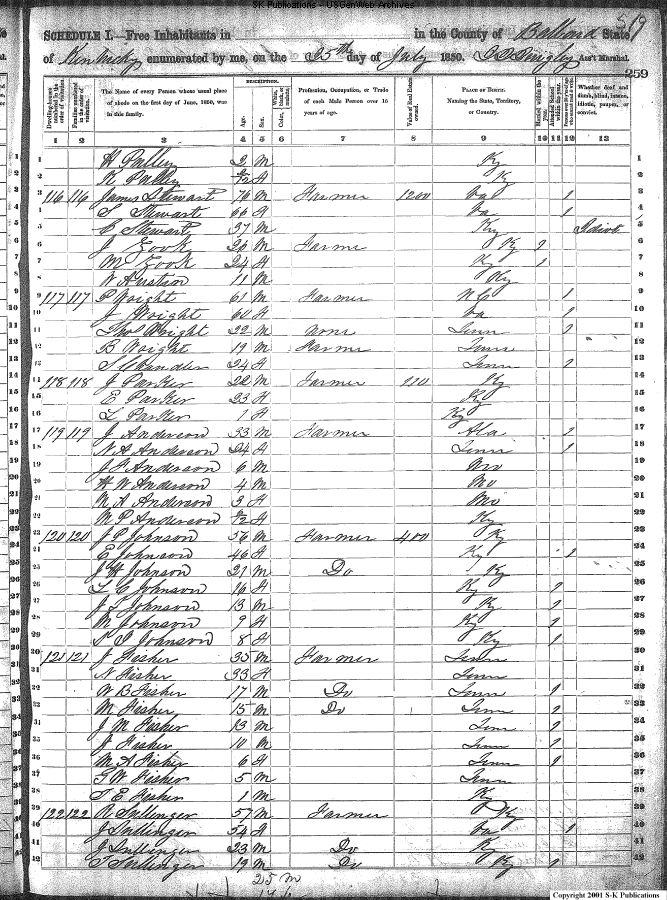 SK Publications - USGenWeb Archives
519
SCHEDULE I.—Free Inhabitants in in the County of Ballard State
of Kentucky enumerated by me, on the 25th day of July 1850. Quigley Ass't Marshal.
259
Dwelling-houses numbered in the order of visitation.
Families numbered in the order of visitation.
The Name of every Person whose usual place of abode on the first day of June, 1850, was in this family.
DESCRIPTION.
Age.
Sex.
Color, White, black, or mulatto.
Profession, Occupation, or Trade of each Male Person over 15 years of age.
Value of Real Estate owned.
PLACE OF BIRTH. Naming the State, Territory, or Country.
Married within the year.
Attended School within the year.
Whether deaf and dumb, blind, insane, idiotic, pauper, or convict.
1 2 3 4 5 6 7 8 9 10 11 12 13
1 H Pulley 2 M Ky 1
2 K Pulley /12 M Ky 2
3 116 116 James Stewart 76 M Farmer 1200 Va 1 3
4 S Stewart 66 F Va 1 4
5 C Stewart 37 M Ky Idiot 5
6 J Zook 26 M Farmer Ky 1 6
7 M Zook 24 F Ky 1 7
8 W Austin 11 M Ky 8
9 117 117 P Wright 61 M Farmer N C 1 9
10 J Wright 60 F Va 1 10
11 Thos Wright 22 M None Tenn 1 11
12 B Wright 19 M Farmer Tenn 12
13 S Chandler 24 F Tenn 1 13
14 118 118 J Parker 22 M Farmer 110 Ky 14
15 E Parker 23 F Ky 15
16 L Parker 1 F Ky 16
17 119 119 J Anderson 33 M Farmer Ala 1 17
18 N A Anderson 24 F Tenn 1 18
19 J F Anderson 6 M Mo 19
20 H W Anderson 4 M Mo 20
21 M A Anderson 3 F Mo 21
22 M P Anderson /12 F Ky 22
23 120 120 J P Johnson 56 M Farmer 400 Ky 23
24 E Johnson 46 F Ky 1 24
25 J H Johnson 21 M Do Ky 25
26 L C Johnson 16 F Ky 1 26
27 J L Johnson 13 M Ky 1 27
28 M Johnson 9 F Ky 1 28
29 N S Johnson 8 F Ky 1 29
30 121 121 J Fisher 35 M Farmer Tenn 30
31 N Fisher 33 F Tenn 31
32 W B Fisher 17 M Do Tenn 1 32
33 M Fisher 15 M Do Tenn 1 33
34 J M Fisher 13 M Tenn 1 34
35 J Fisher 10 M Tenn 1 35
36 M A Fisher 6 F Tenn 1 36
37 G W Fisher 5 M Tenn 37
38 T E Fisher 1 M Ky 38
39 122 122 R Sullinger 57 M Farmer Ky 39
40 J Sullinger 54 F Va 1 40
41 J Sullinger 23 M Do Ky 41
42 T Sullinger 19 M Do Ky 1 42
25 M
Copyright 2001 S-K Publications